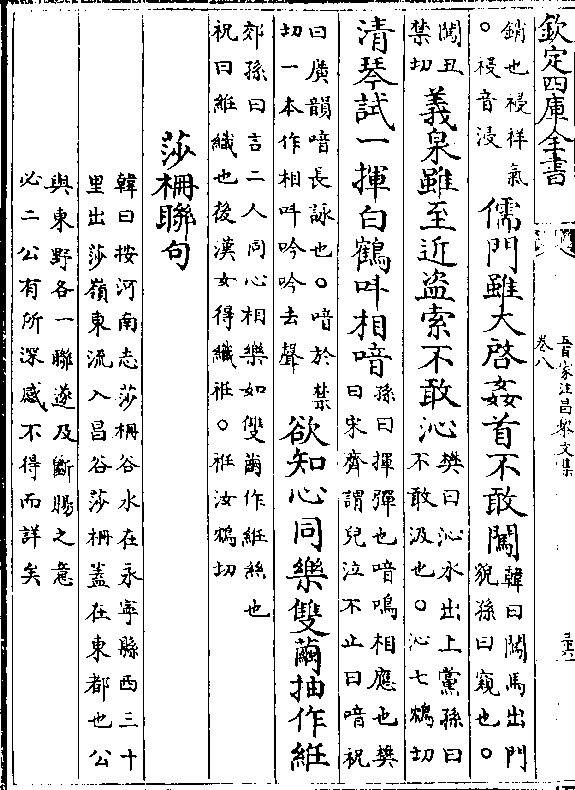 欽定四庫全書
五百家注昌黎文集
卷八
銷也祲祥氣
○祲音浸
儒門雖大啓姦首不敢闖
韓曰闖馬出門
貌孫曰窺也○
闖丑
禁切
義泉雖至近盜索不敢沁
樊曰沁水出上黨孫曰
不敢汲也○沁七鴆切
清琴試一揮白鶴呌相喑
孫曰揮彈也喑鳴相應也樊
曰宋齊謂兒泣不止曰喑祝
曰廣韻喑長詠也○喑於禁
切一本作相呌吟吟去聲
欲知心同樂雙繭抽作紝
郊孫曰言二人同心相樂如雙繭作紝絲也
祝曰紝織也後漢女得織紝○紝汝鴆切
莎柵聯句
韓曰按河南志莎柵谷水在永寧縣西三十
里出莎嶺東流入昌谷莎柵蓋在東都也公
與東野各一聯遂及斷腸之意
必二公有所深感不得而詳矣